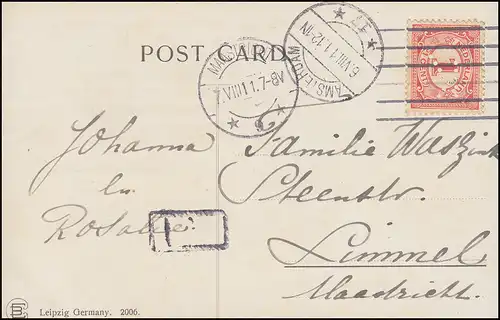 POST CARD
AMSTERDAM
6.VIII11.12-1N
MAASTRICHT
7.VIII11.7-8V
NEDERLAND
1
Johanna
en
Rosalie.
Familie
Steenstr.
Limmel
Maastricht.
Leipzig Germany. 2006.